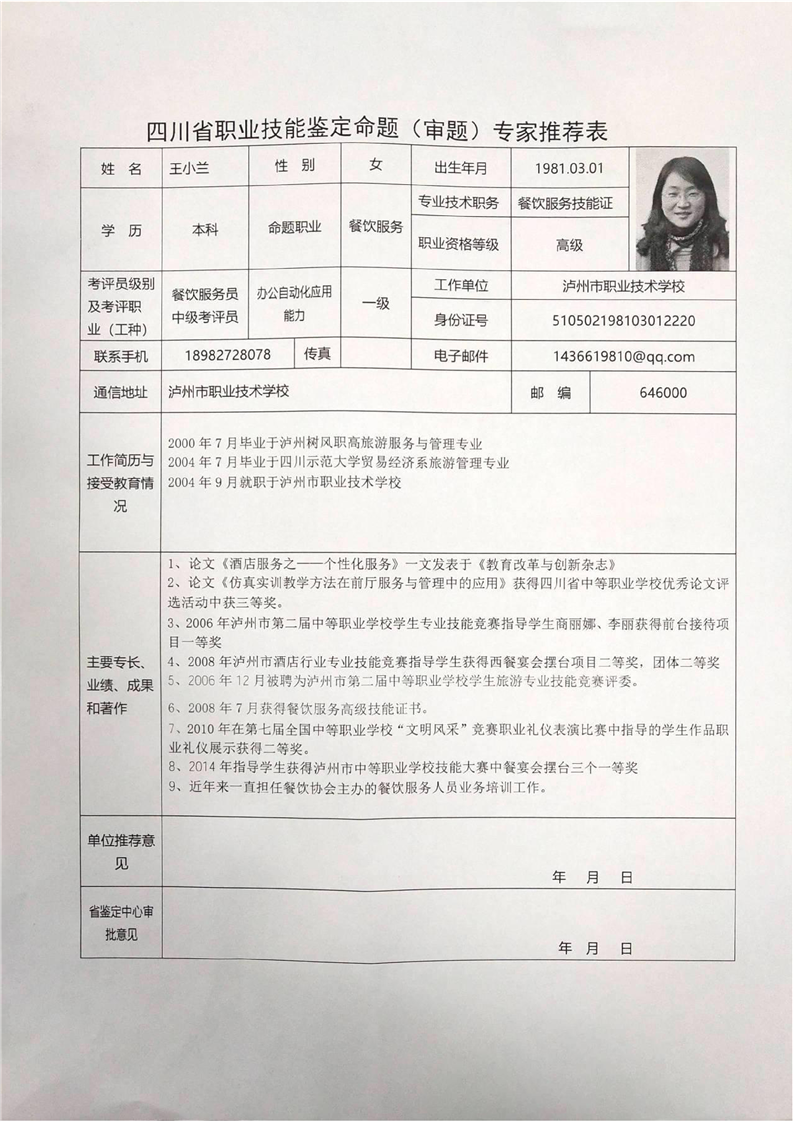 四川省职业技能鉴定命题（审题）专家推荐表
姓 名 王小兰 性 别 女 出生年月 1981.03.01
学 历 本科 命题职业 餐饮服务 专业技术职务 餐饮服务技能证
职业资格等级 高级
考评员级别及考评职业（工种） 餐饮服务员中级考评员 办公自动化应用能力 一级 工作单位 泸州市职业技术学校
身份证号 510502198103012220
联系手机 18982728078 传真 电子邮件 1436619810@qq.com
通信地址 泸州市职业技术学校 邮 编 646000
工作简历与
接受教育情
况
2000 年 7 月毕业于泸州树风职高旅游服务与管理专业
2004 年 7 月毕业于四川示范大学贸易经济系旅游管理专业
2004 年 9 月就职于泸州市职业技术学校
主要专长、
业绩、成果
和著作
1、论文《酒店服务之——个性化服务》一文发表于《教育改革与创新杂志》
2、论文《仿真实训教学方法在前厅服务与管理中的应用》获得四川省中等职业学校优秀论文评
选活动中获三等奖。
3、2006 年泸州市第二届中等职业学校学生专业技能竞赛指导学生商丽娜、李丽获得前台接待项
目一等奖
4、2008 年泸州市酒店行业专业技能竞赛指导学生获得西餐宴会摆台项目二等奖，团体二等奖
5、2006 年 12 月被聘为泸州市第二届中等职业学校学生旅游专业技能竞赛评委。
6、2008 年 7 月获得餐饮服务高级技能证书。
7、2010 年在第七届全国中等职业学校“文明风采”竞赛职业礼仪表演比赛中指导的学生作品职
业礼仪展示获得二等奖。
8、2014 年指导学生获得泸州市中等职业学校技能大赛中餐宴会摆台三个一等奖
9、近年来一直担任餐饮协会主办的餐饮服务人员业务培训工作。
单位推荐意
见
年 月 日
省鉴定中心审
批意见
年 月 日